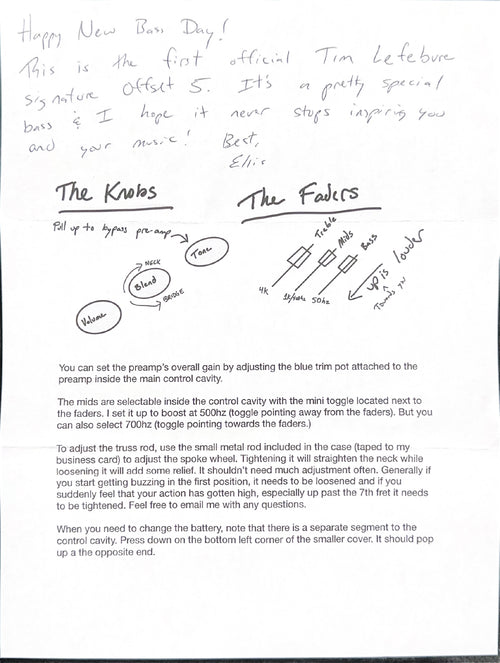 Happy New Bass Day!
This is the first official Tim Lefebvre
signature Offset 5. It's a pretty special
bass & I hope it never stops inspiring you
and your music!
Best,
Ellis
The Knobs
The Faders
Pull up to bypass pre-amp
Tone
NECK
Blend
BRIDGE
Volume
Treble
Mids
Bass
4K
50hz
up is louder
Towards you
You can set the preamp's overall gain by adjusting the blue trim pot attached to the
preamp inside the main control cavity.
The mids are selectable inside the control cavity with the mini toggle located next to
the faders. I set it up to boost at 500hz (toggle pointing away from the faders). But you
can also select 700hz (toggle pointing towards the faders.)
To adjust the truss rod, use the small metal rod included in the case (taped to my
business card) to adjust the spoke wheel. Tightening it will straighten the neck while
loosening it will add some relief. It shouldn't need much adjustment often. Generally if
you start getting buzzing in the first position, it needs to be loosened and if you
suddenly feel that your action has gotten high, especially up past the 7th fret it needs
to be tightened. Feel free to email me with any questions.
When you need to change the battery, note that there is a separate segment to the
control cavity. Press down on the bottom left corner of the smaller cover. It should pop
up a the opposite end.